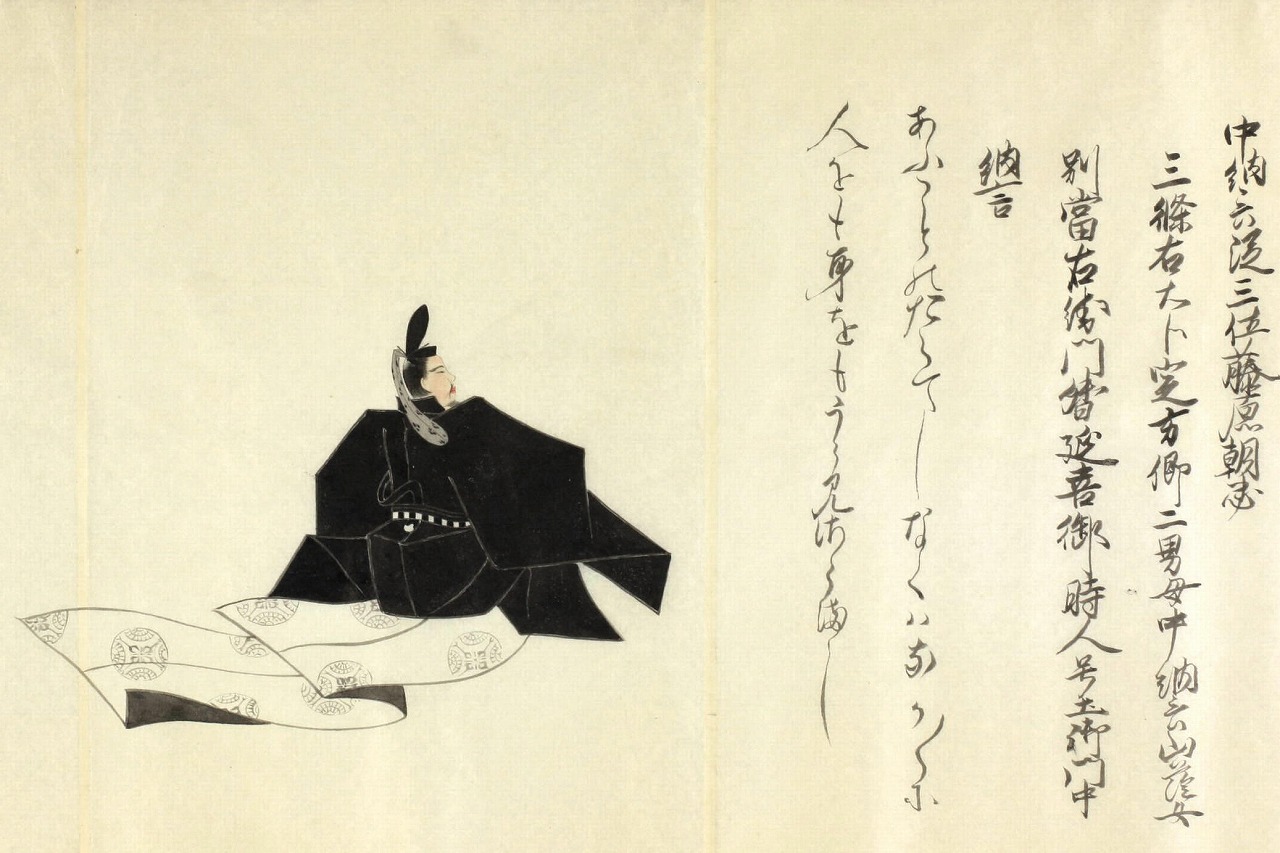 中納言従三位藤原朝忠
三條右大卜定方卿二男母中納言山蔭女
別當右衛門督延喜御時人号土御門中
納言
あふことのたえてしなくハなかくに
人をも身をもうらみさらまし